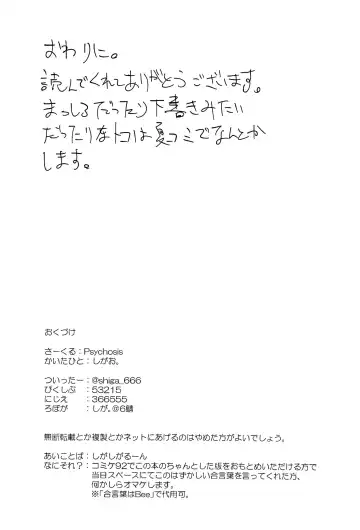 おわりに。
読んでくれてありがとうございます。
まっしろだったり下書きみたい
だったりなトコは夏コミでなんとか
します。
おくづけ
さーくる：Psychosis
かいたひと：しがお。
ついったー：@shiga_666
ぴくしぶ：53215
にじえ：366555
ろぼが：しが。@6鯖
無断転載とか複製とかネットにあげるのはやめた方がよいでしょう。
あいことば：しがしがるーん
なにそれ？：コミケ92でこの本のちゃんとした版をおもとめいただける方で
当日スペースにてこのはずかしい合言葉を言ってくれた方、
何かしらオマケします。
※「合言葉はBee」で代用可。